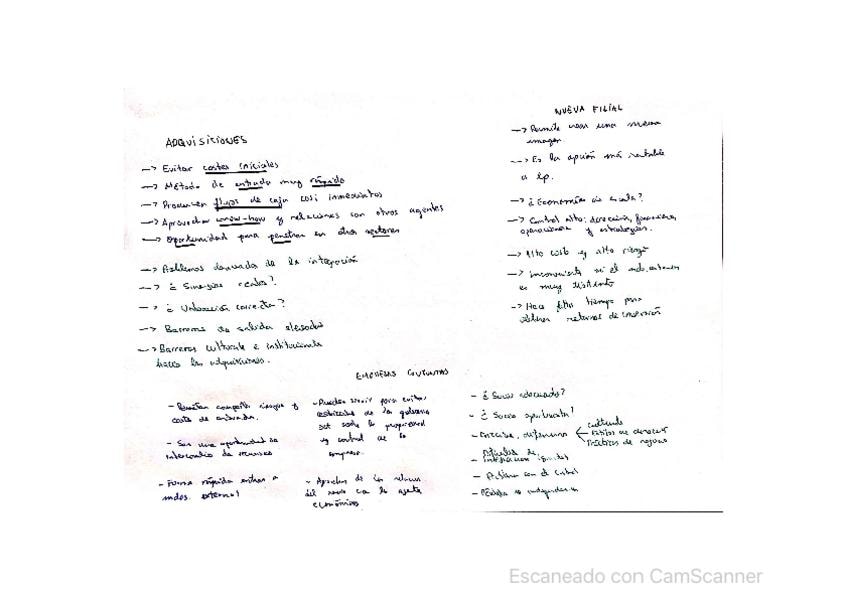 ADQUISICIONES
-> Evitar costes iniciales
-> Método de entrada muy rápido
-> Producen flujos de caja casi inmediatos
-> Aprovechar know-how y relaciones con otros agentes
-> Oportunidad para penetrar en otros sectores
-> Problemas derivados de la integración
-> ¿ Sinergias reales?
-> ¿ Valoración correcta?
-> Barreras de salida elevadas
-> Barreras culturales e institucionales
hacia las adquisiciones.
NUEVA FILIAL
-> Permite crear una nueva
imagen
-> Es la opción más rentable
a lp.
-> ¿ Economías de escala?
-> Control alto: financiera,
operaciones y estratégicas.
-> Alto coste y alto riesgo
-> Inconveniente si el
es muy distinto
-> Hace falta tiempo para
obtener retornos de inversión
EMPRESAS CONJUNTAS
- Permiten compartir riesgos y
costes de entrada.
- Son una oportunidad de
intercambio de recursos
- Forma rápida entrar a
mdos. external
- Pueden servir para evitar
de los gobiernos
sobre la propiedad
y control de la
empresa.
- de las relaciones
del socio con los agentes
económicos.
- ¿ Socio adecuado?
- ¿ Socio oportunista?
culturales
estilos de dirección
Prácticas de negocio
- Dificultades de
integración
- el control
- Pérdida de independencia
Escaneado con CamScanner